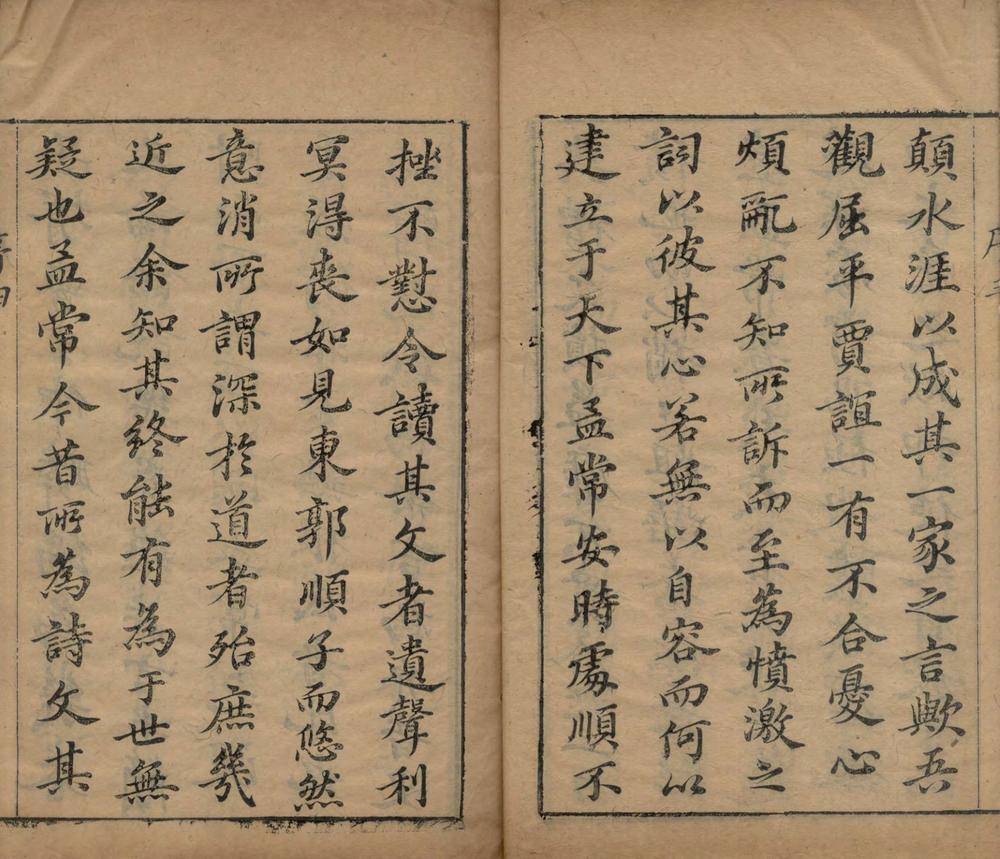 顛水涯以成其一家之言歟吾
觀屈平賈誼一有不合憂心
煩亂不知所訴而至為憤激之
詞以彼其心若無以自容而何以
建立于天下孟常安時處順不
挫不懟令讀其文者遺聲利
冥得喪如見東郭順子而悠然
意消所謂深於道者殆庶幾
近之余知其終能有為于世無
疑也孟常今昔所為詩文其